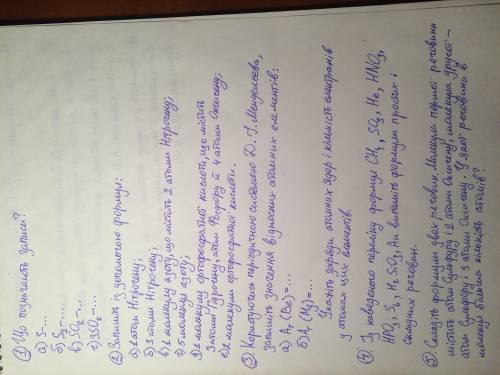 ① Що позначають записи?
а) S-...
б) S₂-...
в) SO₂-...
г) 3SO₂-...
② Запишіть за допомогою формул:
а) 2 атоми Нітрогену;
б) 3 атоми Нітрогену;
в) 1 молекулу азоту, що містить 2 атоми Нітрогену;
г) 5 молекул азоту;
д) 1 молекулу ортофосфатної кислоти, що містить
3 атоми Гідрогену, атом Фосфору й 4 атоми Оксигену;
е) 2 молекули ортофосфатної кислоти.
③ Користуючися періодичною системою Д. І. Менделєєва,
запишіть значення відносних атомних елементів:
а) Ar (Ca) = ...
б) Ar (Mg) = ...
Укажіть заряди атомних ядер і кількість електронів
у атомах цих елементів.
④ Із наведеного переліку формул CH₄, SO₃, He, HNO₃,
HPO₃, S₈, H₂SiO₃, Au випишіть формули простих і
складних речовин.
⑤ Складіть формули двох речовин. Молекула першої речовини
містить атом Сульфуру і 2 атоми Оксигену, молекула другої –
атом Сульфуру і 3 атоми Оксигену. У якої речовини в
молекулі більша кількість атомів?